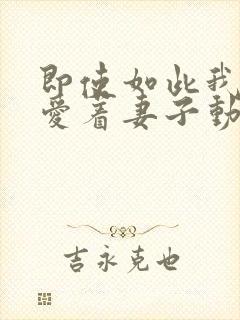 即使如此我
愛着妻子動
吉永克也